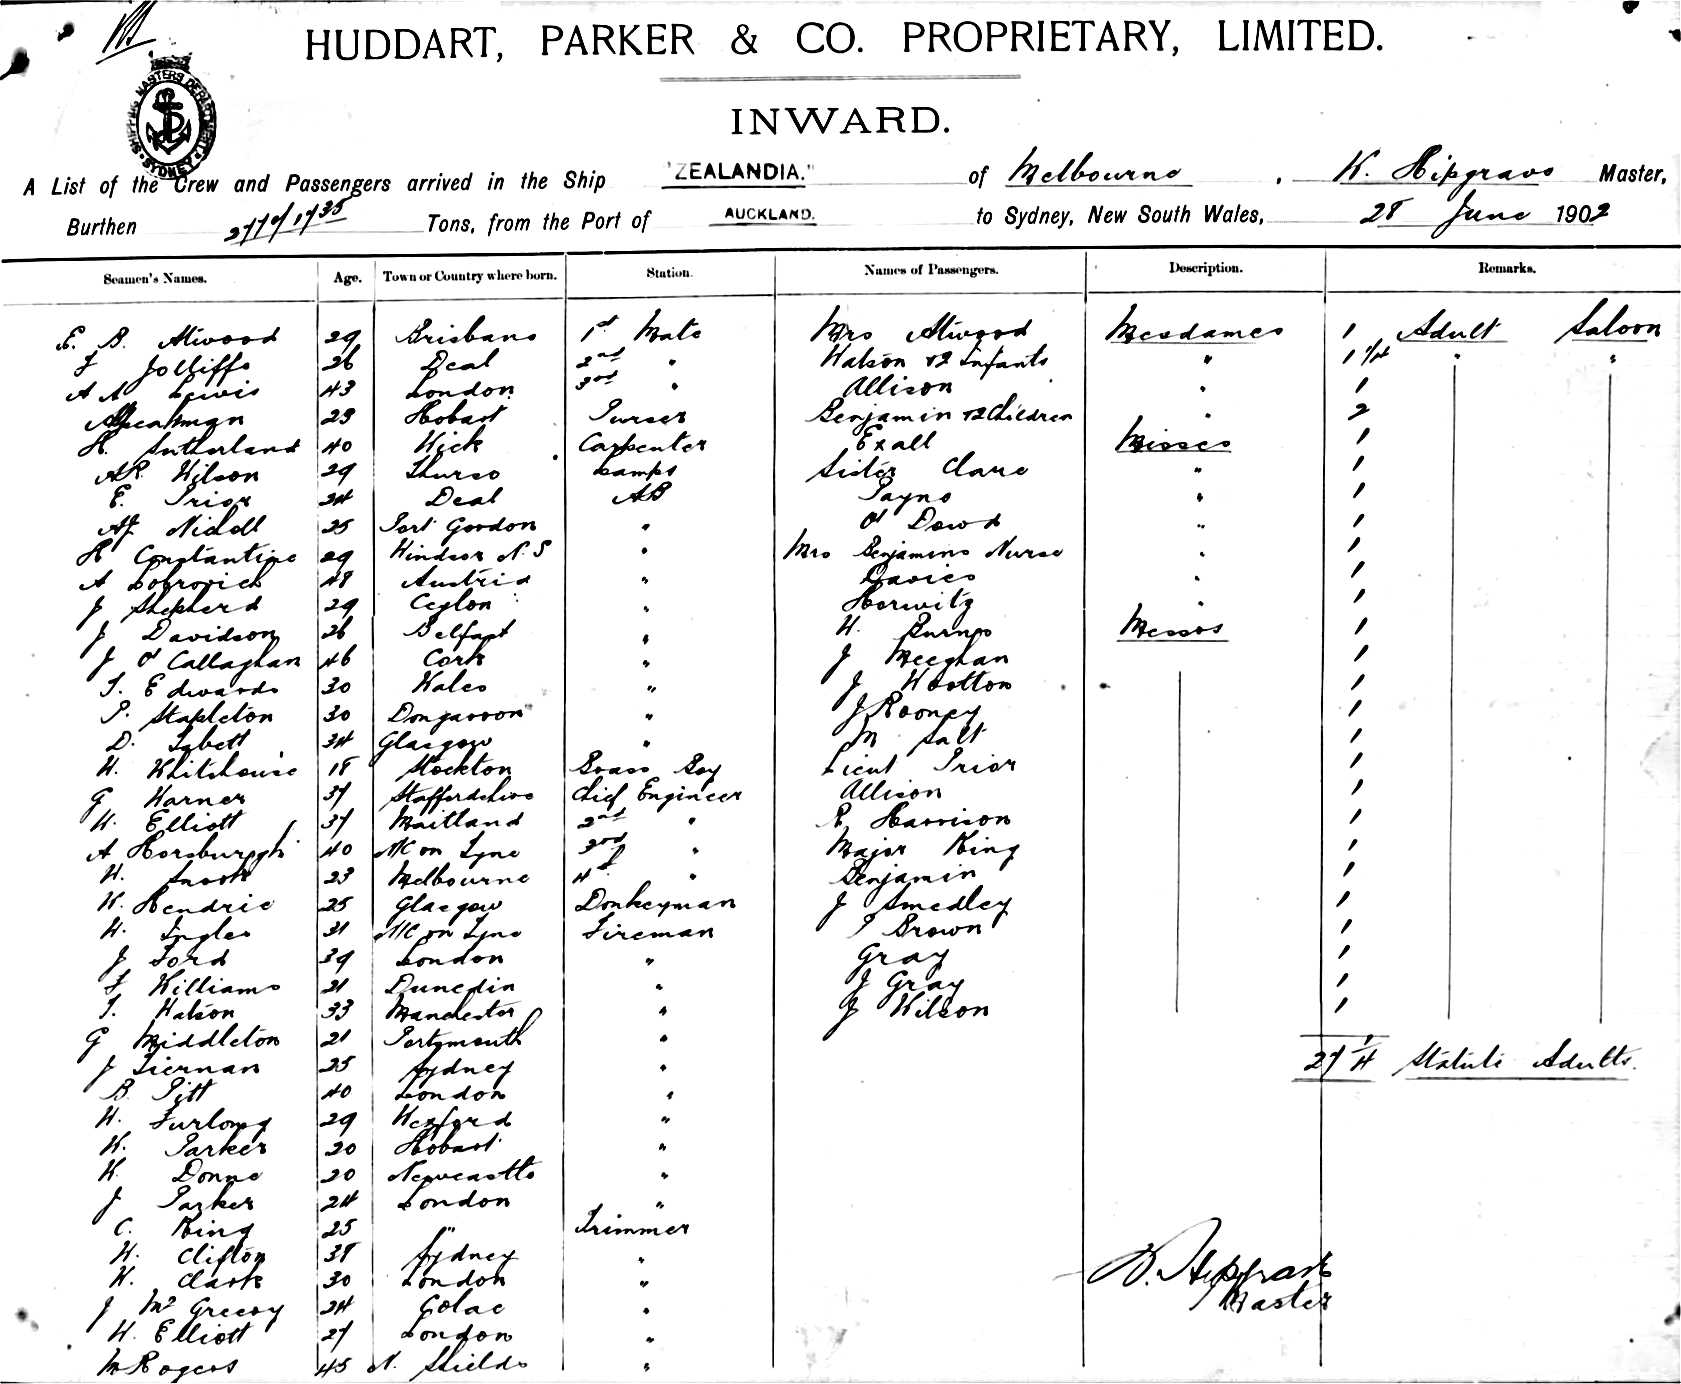 HUDDART, PARKER & CO. PROPRIETARY, LIMITED.
SHIPPING MASTERS DEPARTMENT SYDNEY
INWARD.
A List of the Crew and Passengers arrived in the Ship "ZEALANDIA." of Melbourne, W. Hipgrave Master,
Burthen Tons, from the Port of AUCKLAND. to Sydney, New South Wales, 28 June 1902
Seamen's Names. Age. Town or Country where born. Station. Names of Passengers. Description. Remarks.
E. B. Atwood 29 Brisbane 1st Mate Mrs Atwood Mesdames 1 Adult Saloon
F Jolliffe 26 Deal 2nd " Watson & 2 Infants " 1 " "
A A Lewis 43 London 3rd " Allison " 1
Speakman 23 Hobart Purser Benjamin & 2 Children " 2
H. Sutherland 40 Wick Carpenter Exall Misses 1
AR. Wilson 29 Thurso Lamps Sister Clare " 1
E. Prior 24 Deal AB Payne " 1
25 Port Gordon " O'Dowd " 1
H Constantine 29 Windsor N.S " Mrs Benjamins Nurse " 1
A 48 Austria " Davies " 1
J Shepherd 29 Ceylon " Horwitz " 1
J Davidson 26 Belfast " W. Burns Messrs 1
J O'Callaghan 46 Cork " J Meeghan 1
T. Edwards 30 Wales " J Wootton 1
P. Stapleton 30 Dongarvon " J Rooney 1
D. 34 Glasgow " M Salt 1
W. Whitehouse 18 Stockton Brass Boy Lieut Prior 1
G Warner 37 Staffordshire Chief Engineer Allison 1
W. Elliott 37 Maitland 2nd " R. Harrison 1
A Horsburgh 40 NC on Tyne 3rd " Major King 1
W. Snook 23 Melbourne 4th " Benjamin 1
W. Hendrie 25 Glasgow Donkeyman J Smedley 1
W. Ingles 31 NC on Tyne Fireman T Brown 1
J Ford 39 London " Gray 1
F Williams 21 Dunedin " J Gray 1
T. Watson 33 Manchester " J Wilson 1
G Middleton 21 Portsmouth "
J Tiernan 25 Sydney " 27 1/4 Statute Adults.
B. Pitt 40 London "
W. Furlong 29 Wexford "
W. Parker 20 Hobart "
W. Donne 20 Newcastle "
J Parker 24 London "
C. King 25 " Trimmer
W. Clifton 38 Sydney "
W. Clark 30 London "
J McGreevy 24 Colac "
W. Elliott 27 London "
M Rogers 45 N. Shields "
W. Hipgrave
Master